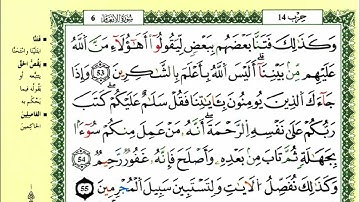 حزب 14
سورة الأنعام
6
وَكَذَٰلِكَ فَتَنَّا بَعْضَهُم بِبَعْضٍ لِّيَقُولُوٓا۟ أَهَٰٓؤُلَآءِ مَنَّ ٱللَّهُ
عَلَيْهِم مِّنۢ بَيْنِنَآ أَلَيْسَ ٱللَّهُ بِأَعْلَمَ بِٱلشَّٰكِرِينَ 53 وَإِذَا
جَآءَكَ ٱلَّذِينَ يُؤْمِنُونَ بِـَٔايَٰتِنَا فَقُلْ سَلَٰمٌ عَلَيْكُمْ كَتَبَ
رَبُّكُمْ عَلَىٰ نَفْسِهِ ٱلرَّحْمَةَ أَنَّهُۥ مَنْ عَمِلَ مِنكُمْ سُوٓءًۢا
بِجَهَٰلَةٍ ثُمَّ تَابَ مِنۢ بَعْدِهِۦ وَأَصْلَحَ فَإِنَّهُۥ غَفُورٌ رَّحِيمٌ 54
وَكَذَٰلِكَ نُفَصِّلُ ٱلْـَٔايَٰتِ وَلِتَسْتَبِينَ سَبِيلُ ٱلْمُجْرِمِينَ 55
فتنّا
ابتلينا وامتحنّا
يقصّ الحقّ
يتبعه أو
يقوله فيما
يحكم به
الفاصلين
الحاكمين